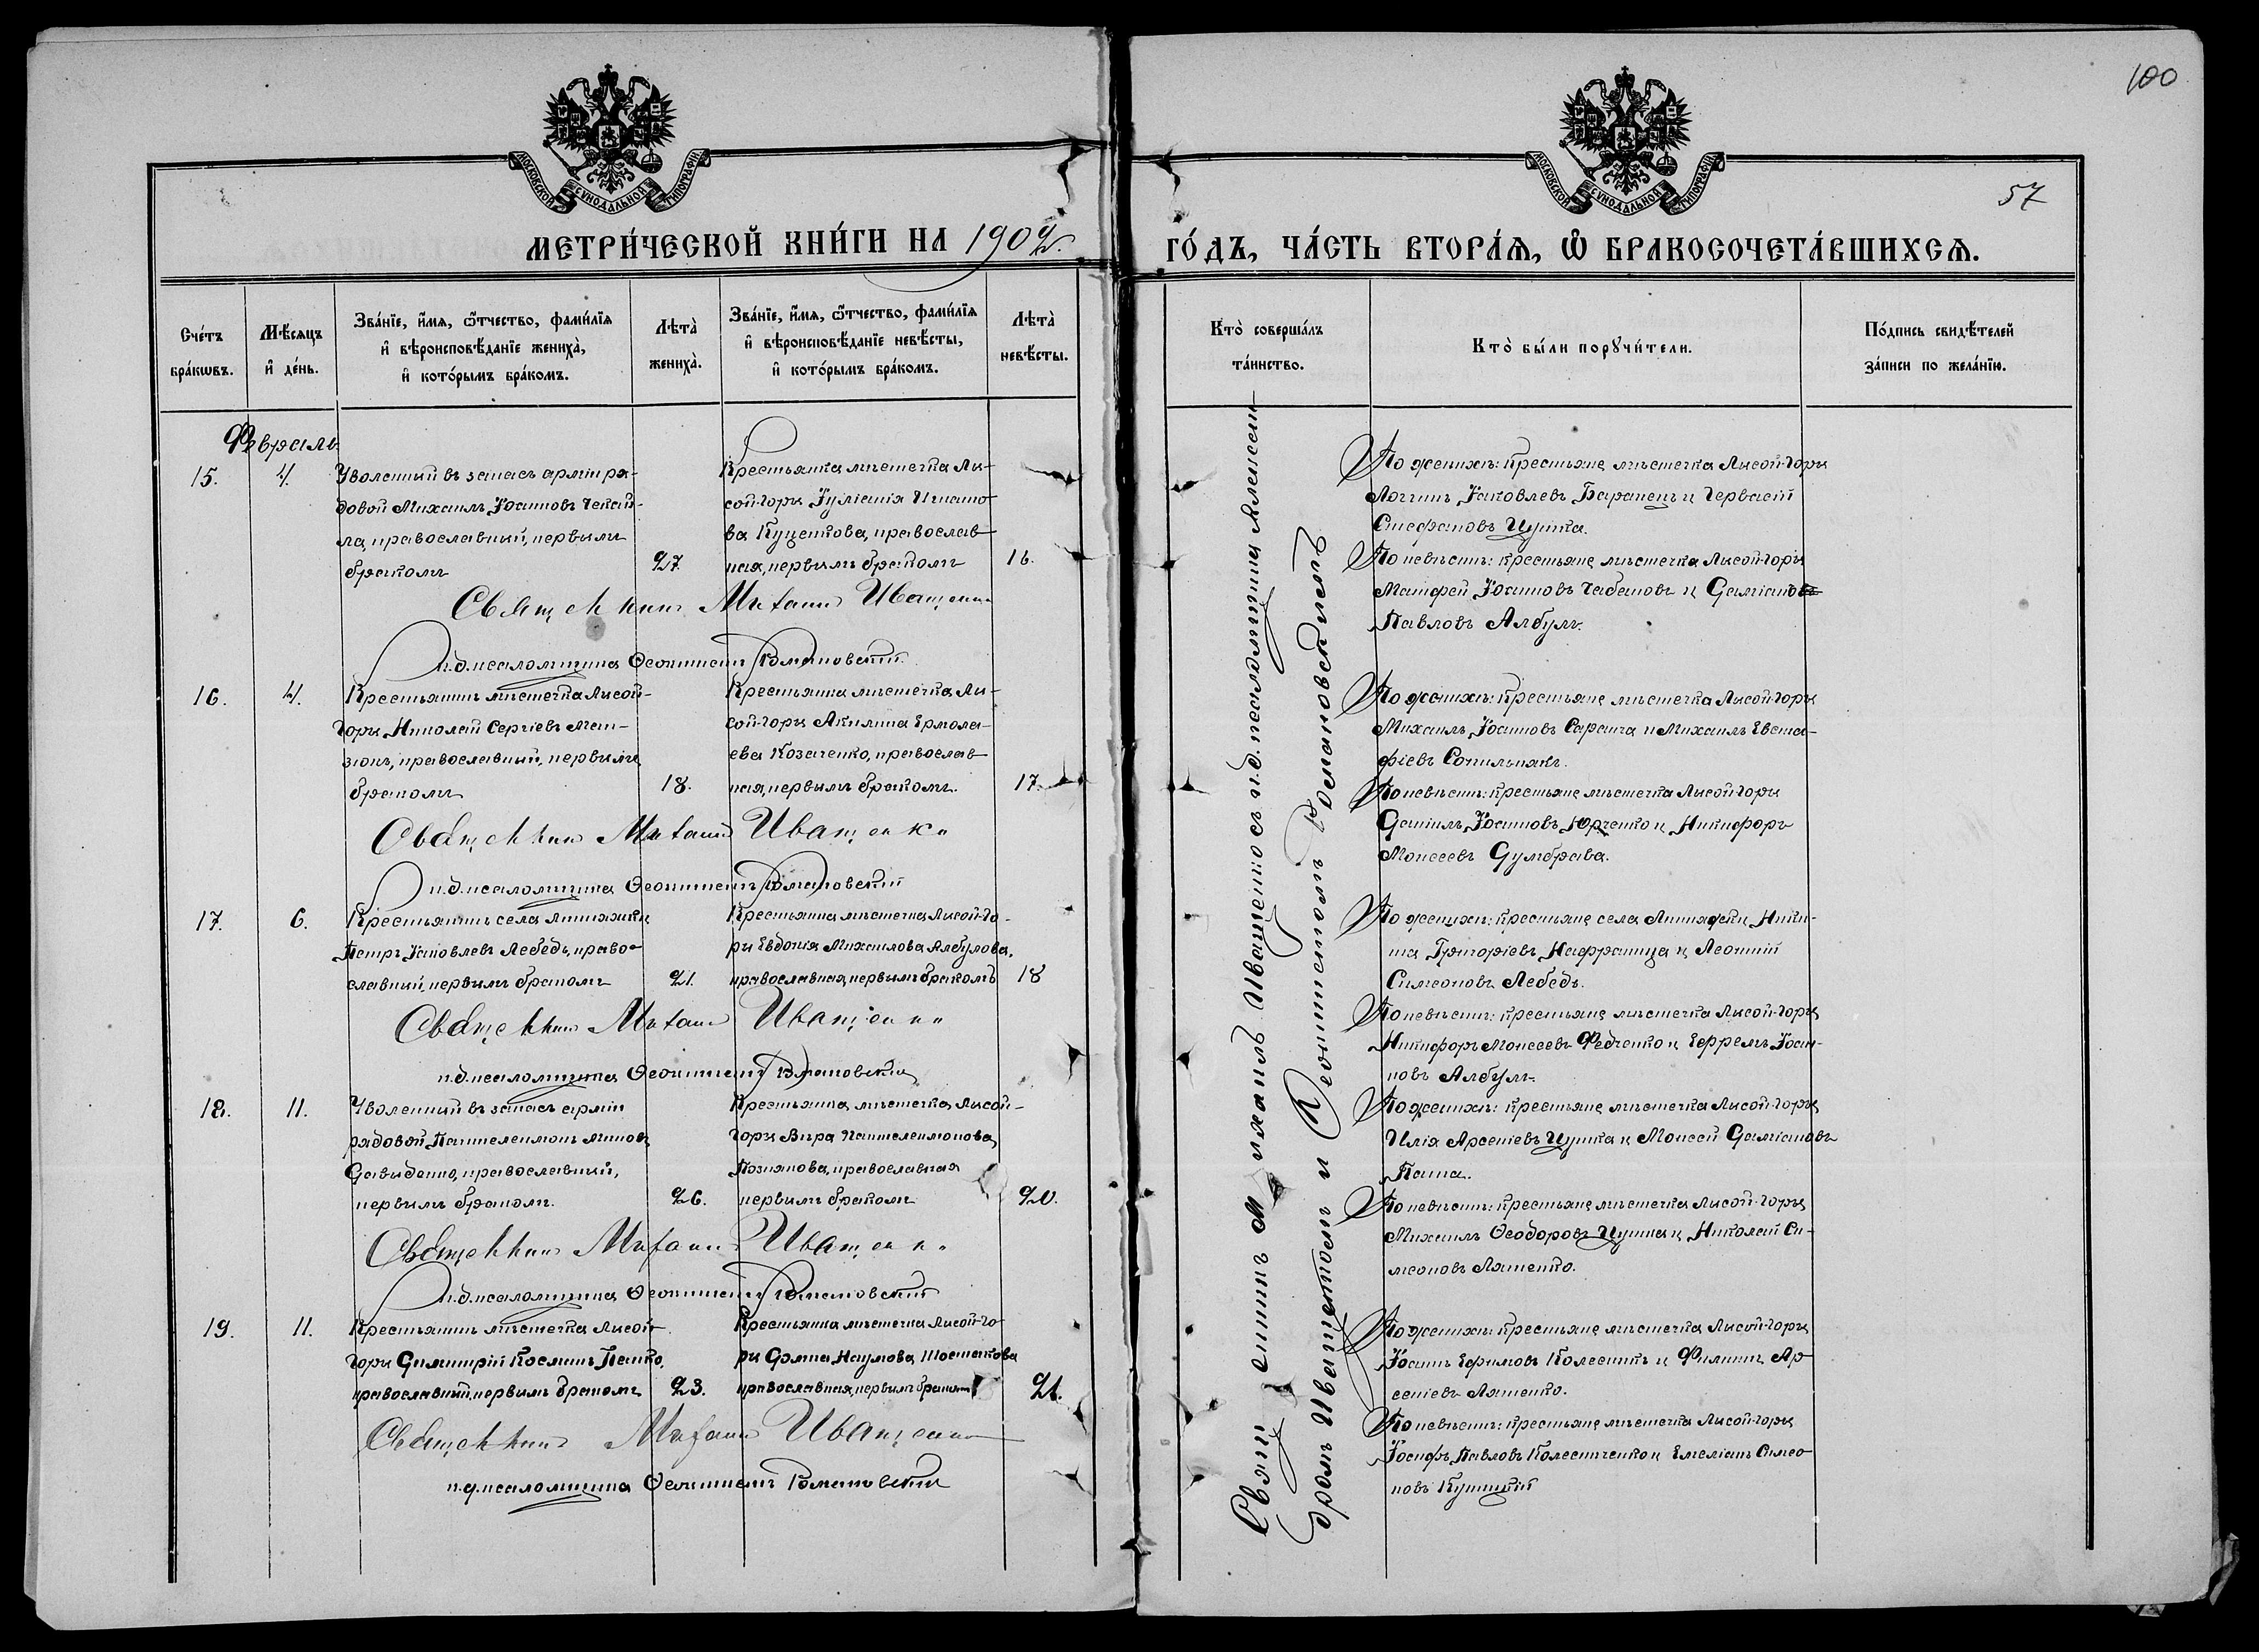 100
МОСКОВСКОЙ СѴНОДАЛЬНОЙ ТИПОГРАФІИ
МОСКОВСКОЙ СѴНОДАЛЬНОЙ ТИПОГРАФІИ
57
МЕТРИ́ЧЕСКОЙ КНИ́ГИ НА 1902
ГО́ДЪ, ЧА́СТЬ ВТОРА́Ѧ, Ѿ БРАКОСОЧЕТА́ВШИХСѦ.
Сче́тъ бра́кѡвъ.
Мѣ́сѧцъ и҆ де́нь.
Зва́нїе, и҆́мѧ, ѻ҆́тчество, фами́лїѧ и҆ вѣроисповѣ́данїе жениха̀, и҆ кото́рымъ бра́комъ.
Лѣта̀ жениха̀.
Зва́нїе, и҆́мѧ, ѻ҆́тчество, фами́лїѧ и҆ вѣроисповѣ́данїе невѣ́сты, и҆ кото́рымъ бра́комъ.
Лѣта̀ невѣ́сты.
Кто̀ соверша́лъ та́инство.
Кто̀ бы́ли порꙋчи́тели.
По́дпись свидѣ́телей за́писи по жела́нїю.
Февраль
15.
4.
Уволенный въ запасъ арміи ря-
довой Михаилъ Іоанновъ Чекай-
ла, православный, первымъ
бракомъ
27
Крестьянка мѣстечка Лы-
сой-Горы Іуліанія Игнато-
ва Куценкова, православ-
ная, первымъ бракомъ
16.
Священникъ Михаилъ Иващенко
и.д. псаломщика Ѳеоктистъ Романовскій
16.
4.
Крестьянинъ мѣстечка Лысой-
Горы Николай Сергіевъ Мам-
зюкъ, православный, первымъ
бракомъ
18.
Крестьянка мѣстечка Лы-
сой-Горы Акилина Ермола-
ева Козаченко, православ-
ная, первымъ бракомъ.
17.
Священникъ Михаилъ Иващенко
и.д. псаломщика Ѳеоктистъ Романовскій
17.
6.
Крестьянинъ села Липняжки
Петръ Іаковлевъ Лебедь, право-
славный, первымъ бракомъ
21.
Крестьянка мѣстечка Лысой-Го-
ры Евдокія Михаилова Албулова,
православная, первымъ бракомъ
18
Священникъ Михаилъ Иващенко
и.д. псаломщика Ѳеоктистъ Романовскій
18.
11.
Уволенный въ запасъ арміи
рядовой Пантелеимонъ
Давыденко, православный,
первымъ бракомъ.
26.
Крестьянка мѣстечка Лысой-
Горы Вѣра Пантелеимонова
Познякова, православная
первымъ бракомъ
20.
Священникъ Михаилъ Иващенко
и.д. псаломщика Ѳеоктистъ Романовскій
19.
11.
Крестьянинъ мѣстечка Лысой
Горы Димитрій Космин Панко,
православный, первымъ бракомъ
23.
Крестьянка мѣстечка Лысой-Го-
ры Домна Наумова Шостакова
православная, первымъ бракомъ
21.
Священникъ Михаилъ Иващенко
и.д. псаломщика Ѳеоктистъ Романовскій
Священникъ Михаилъ Иващенко съ и.д. псаломщика Александромъ Иващенкомъ и Ѳеоктистомъ Романовскимъ
По женихѣ: крестьяне мѣстечка Лысой-Горы
Логгинъ Іаковлевъ Баранецъ и Гервасій
Стефановъ Цушка.
По невѣстѣ: крестьяне мѣстечка Лысой-Горы
Матфей Іоанновъ Чабановъ и Даміанъ
Павловъ Албулъ.
По женихѣ: крестьяне мѣстечка Лысой-Горы
Михаилъ Іоанновъ Саранча и Михаилъ Евста-
фіевъ Сопильнякъ.
По невѣстѣ: крестьяне мѣстечка Лысой-Горы
Даніилъ Іоанновъ Юрченко и Никифоръ
Моисеевъ Думбрава.
По женихѣ: крестьяне села Липняжки, Ники-
та Григоріевъ Нафраница и Леонтій
Симеоновъ Лебедь.
По невѣстѣ: крестьяне мѣстечка Лысой-Горы
Никифоръ Моисеевъ Федченко и Ефремъ Іоан-
новъ Албулъ.
По женихѣ: крестьяне мѣстечка Лысой-Горы
Илія Арсеніевъ Цушка и Моисей Даміановъ
Паша.
По невѣстѣ: крестьяне мѣстечка Лысой-Горы
Михаилъ Ѳеодоровъ Цушка и Николай Си-
меоновъ Ляшенко.
По женихѣ: крестьяне мѣстечка Лысой-Горы
Іоаннъ Ефимовъ Колесникъ и Филиппъ Ар-
сеніевъ Ляшенко.
По невѣстѣ: крестьяне мѣстечка Лысой-Горы
Іосифъ Павловъ Колесниченко и Емеліанъ Симео-
новъ